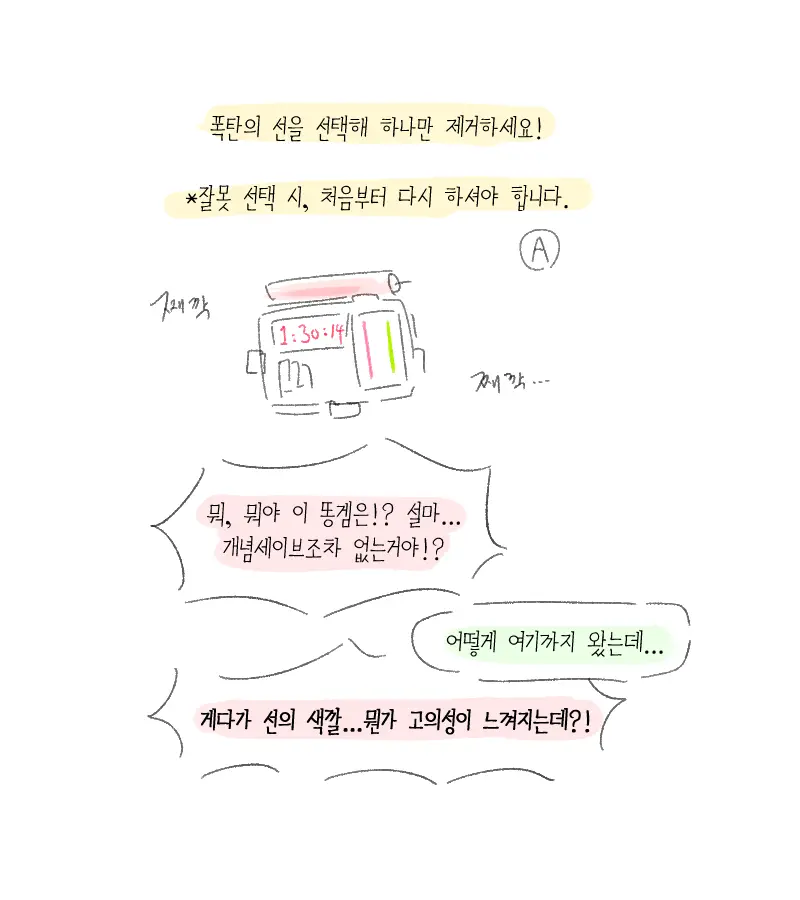 폭탄의 선을 선택해 하나만 제거하세요!
*잘못 선택 시, 처음부터 다시 하셔야 합니다.
A
째깍
1:30:14
째깍...
뭐, 뭐야 이 똥겜은!? 설마...
개념세이브조차 없는거야!?
어떻게 여기까지 왔는데...
게다가 선의 색깔...뭔가 고의성이 느껴지는데?!